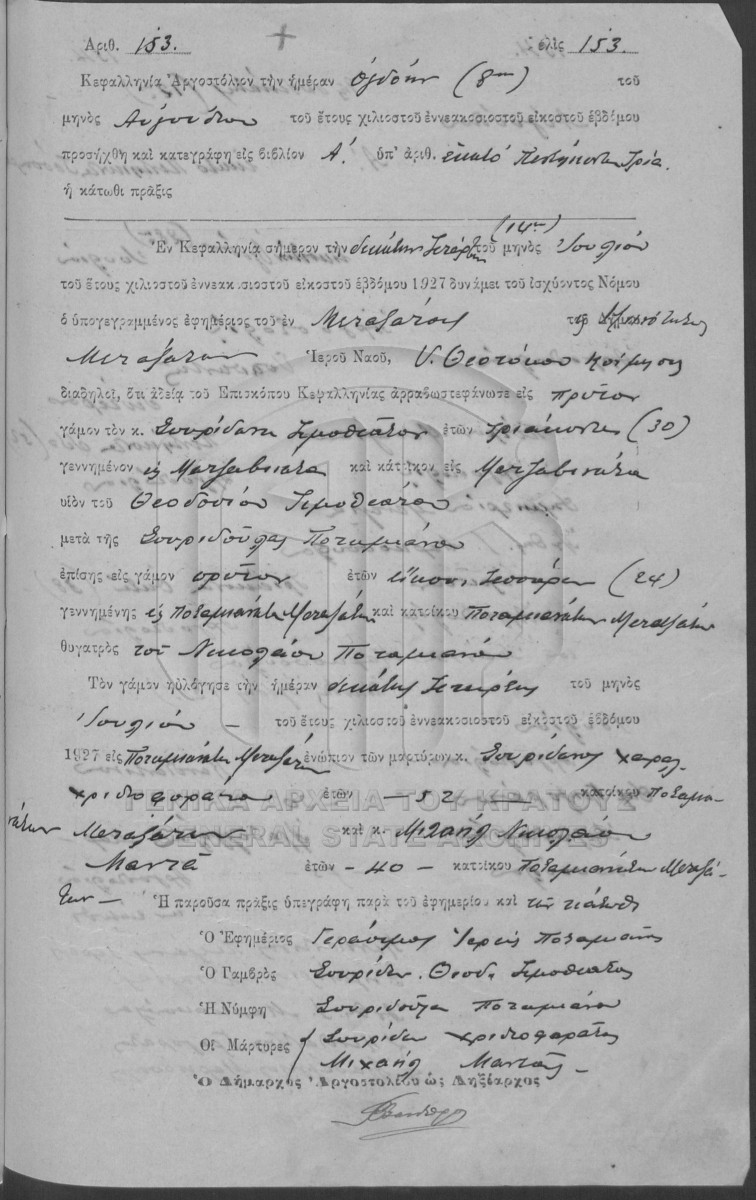 Ἀριθ. 153. σελὶς 153.
Κεφαλληνία Ἀργοστόλιον τὴν ἡμέραν ὀγδόην (8ην) τοῦ
μηνὸς Αὐγούστου τοῦ ἔτους χιλιοστοῦ ἐννεακοσιοστοῦ εἰκοστοῦ ἑβδόμου
προσήχθη καὶ κατεγράφη εἰς βιβλίον Α΄. ὑπ' ἀριθ. ἑκατὸ πεντήκοντα τρία.
ἡ κάτωθι πρᾶξις
(14ην)
Ἐν Κεφαλληνίᾳ σήμερον τὴν δεκάτην τετάρτην τοῦ μηνὸς Ἰουλίου
τοῦ ἔτους χιλιοστοῦ ἐννεακοσιοστοῦ εἰκοστοῦ ἑβδόμου 1927 δυνάμει τοῦ ἰσχύοντος Νόμου
ὁ ὑπογεγραμμένος ἐφημέριος τοῦ ἐν Μεταξάτοις τῆς Κοινότητος
Μεταξάτων Ἱεροῦ Ναοῦ, Υ. Θεοτόκου Κοίμησις
διαδηλοῖ, ὅτι ἀδείᾳ τοῦ Ἐπισκόπου Κεφαλληνίας ἀρραβωστεφάνωσε εἰς πρῶτον
γάμον τὸν κ. Σπυρίδωνα Τιμοθεάτον ἐτῶν τριάκοντα (30)
γεννημένον εἰς Ματζαβινάτα καὶ κάτοικον εἰς Ματζαβινάτα
υἱὸν τοῦ Θεοδοσίου Τιμοθεάτου
μετὰ τῆς Σπυριδούλας Ποταμιάνου
ἐπίσης εἰς γάμον πρῶτον ἐτῶν εἴκοσι τεσσάρων (24)
γεννημένης εἰς Ποταμιανάτα Μεταξάτων καὶ κατοίκου Ποταμιανάτων Μεταξάτων
θυγατρὸς τοῦ Νικολάου Ποταμιάνου
Τὸν γάμον ηὐλόγησε τὴν ἡμέραν δεκάτης τετάρτης τοῦ μηνὸς
Ἰουλίου – τοῦ ἔτους χιλιοστοῦ ἐννεακοσιοστοῦ εἰκοστοῦ ἑβδόμου
1927 εἰς Ποταμιανάτα Μεταξάτων ἐνώπιον τῶν μαρτύρων κ. Σπυρίδωνος Χαραλ.
Χριστοφοράτου ἐτῶν – 52 – κατοίκου Ποταμια-
νάτων Μεταξάτων καὶ κ. Μιχαὴλ Νικολάου
Μαντᾶ ἐτῶν – 40 – κατοίκου Ποταμιανάτων Μεταξά-
των – Ἡ παροῦσα πρᾶξις ὑπεγράφη παρὰ τοῦ ἐφημερίου καὶ τῶν κάτωθι
Ὁ Ἐφημέριος Γεράσιμος Ἱερεὺς Ποταμιάνος
Ὁ Γαμβρὸς Σπυρίδων Θεοδ. Τιμοθεάτος
Ἡ Νύμφη Σπυριδούλα Ποταμιάνου
Οἱ Μάρτυρες Σπυρίδων Χριστοφοράτος
Μιχαὴλ Μαντᾶς –
Ὁ Δήμαρχος Ἀργοστολίου ὡς Ληξίαρχος
ΓΕΝΙΚΑ ΑΡΧΕΙΑ ΤΟΥ ΚΡΑΤΟΥΣ
GENERAL STATE ARCHIVES